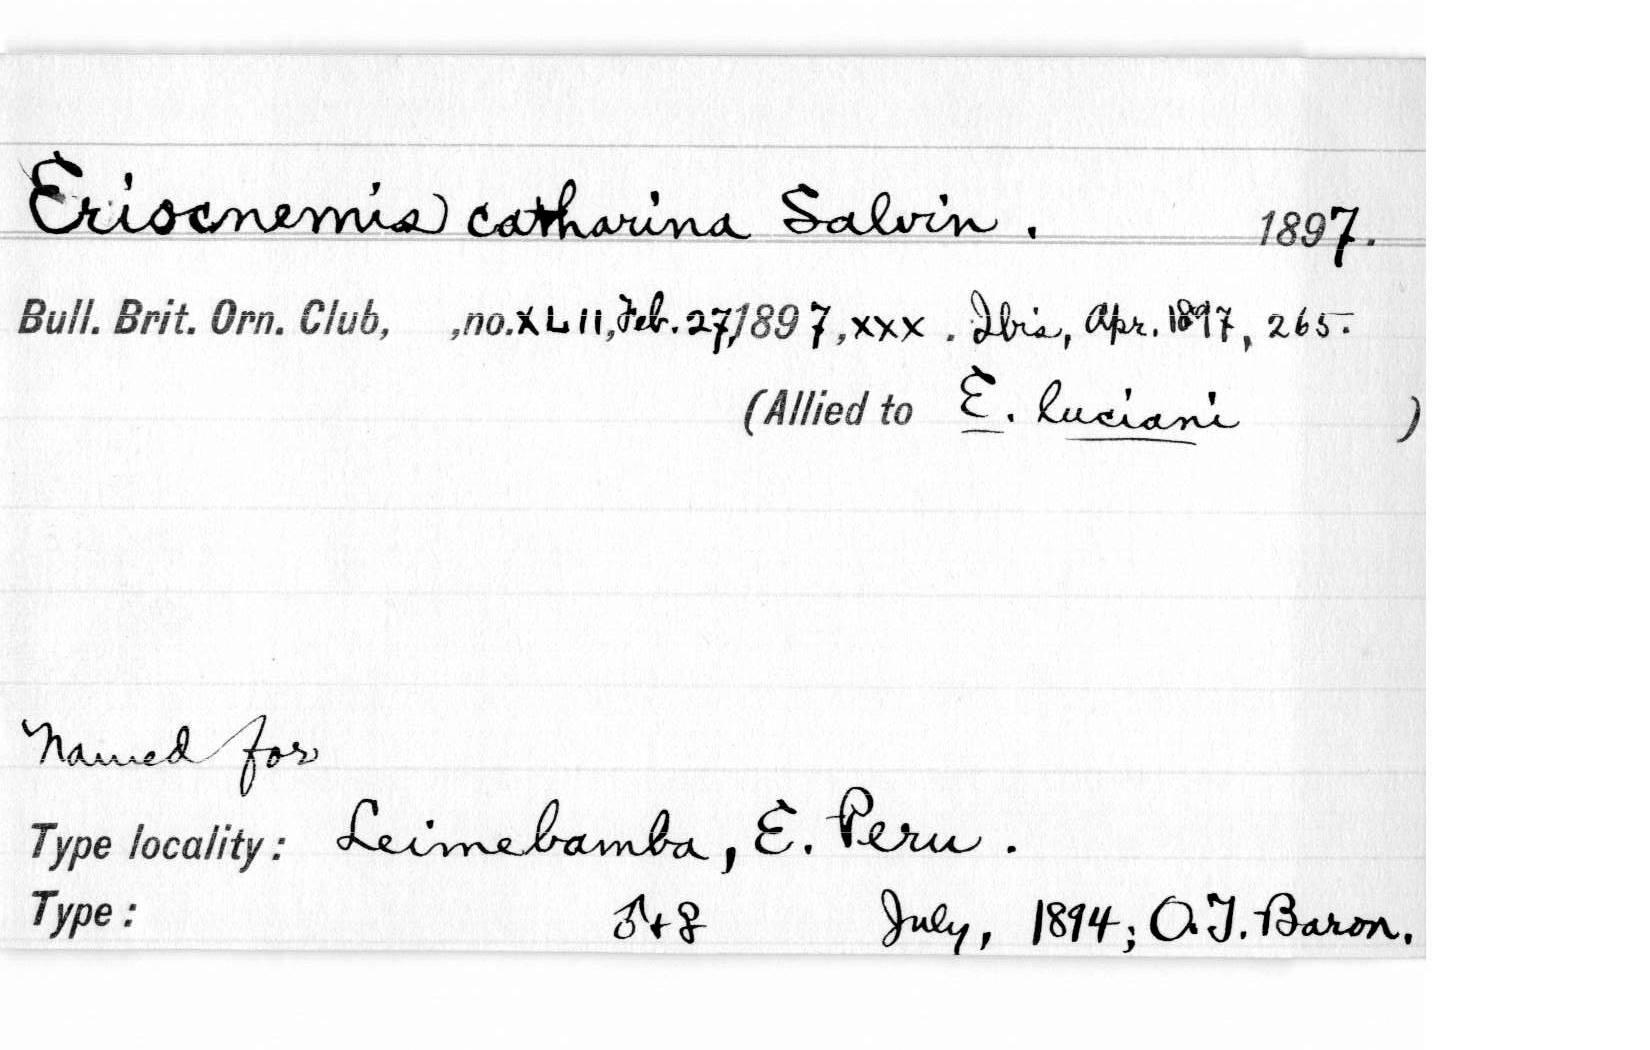 Eriocnemis catharina Salvin. 1897.
Bull. Brit. Orn. Club, ,no.XLII, Feb. 27, 1897, xxx. Ibis, Apr. 1897, 265.
(Allied to E. luciani )
Named for
Type locality: Leimebamba, E. Peru.
Type: ♂+♀ July, 1894; O.T. Baron.